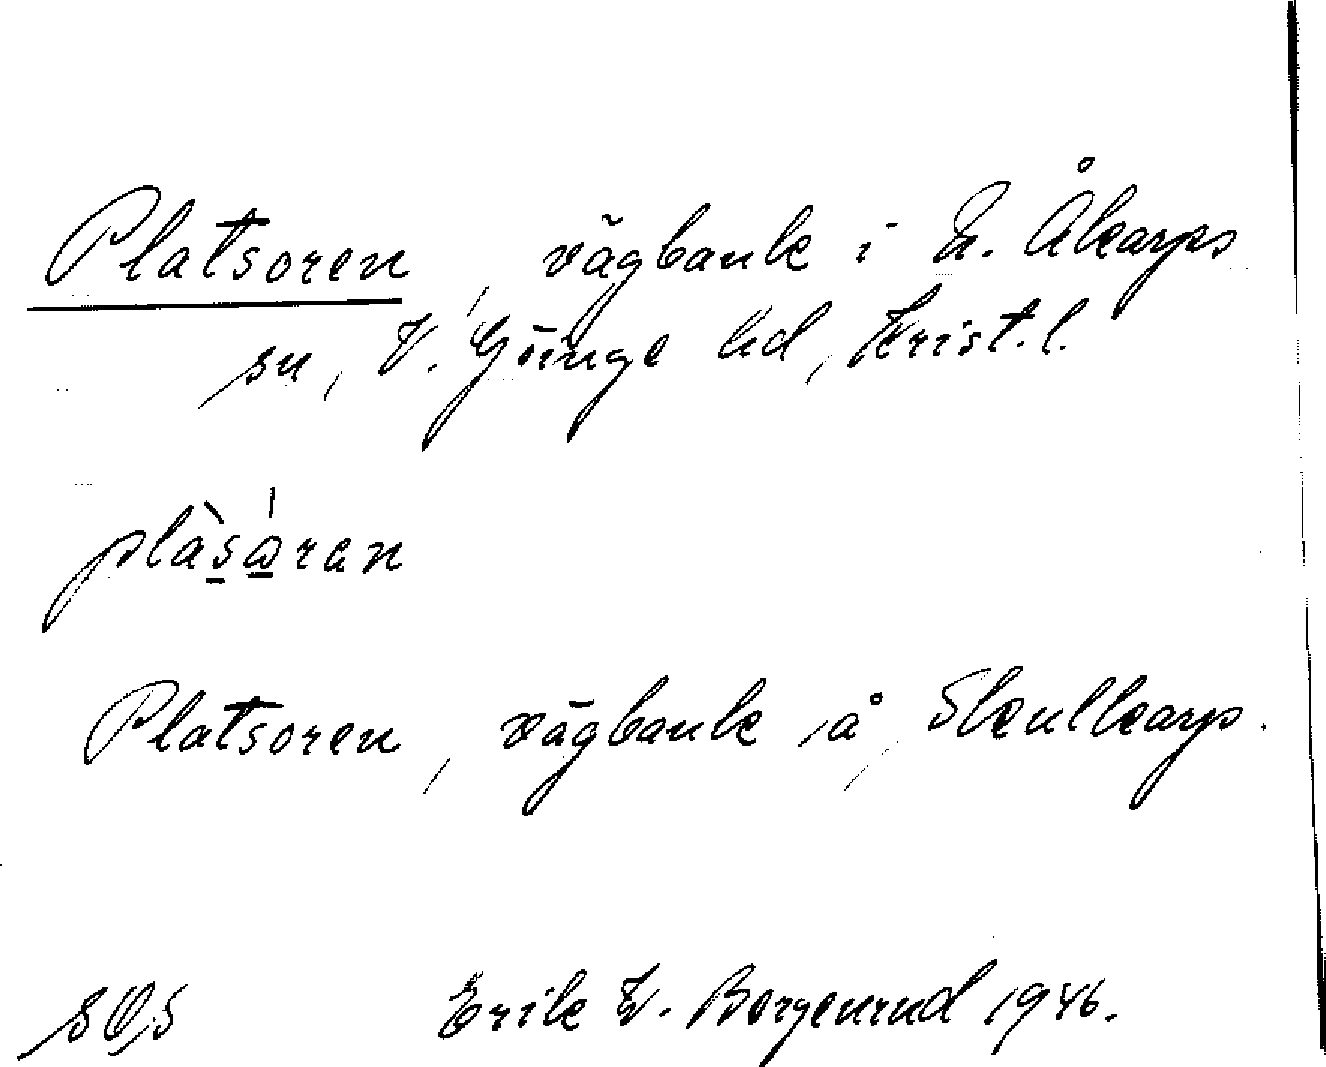 Platsoren, vägbank i N. Åkarps
sn, V. Göinge hd, Krist. l.
plàsáran
Platsoren, vägbank å Skullkarp.
SOS Erik W. Borgenrud 1946.